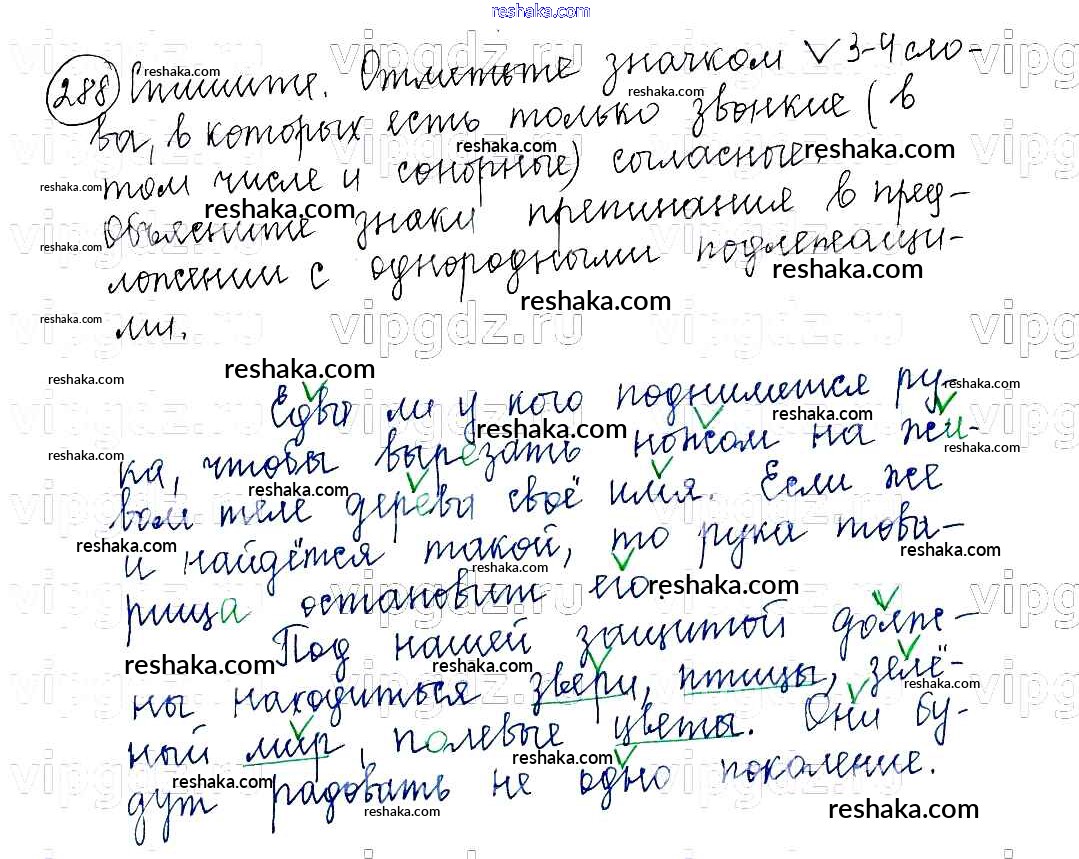 www.reshaka.com
288 Спишите. Отметьте значком ✓ 3-4 сло-
ва, в которых есть только звонкие (в
том числе и сонорные) согласные.
Объясните знаки препинания в пред-
ложении с однородными подлежащи-
ми.
Едва ли у кого поднимется ру-
ка, чтобы вырезать ножом на жи-
вом теле дерева своё имя. Если же
и найдётся такой, то рука това-
рища остановит его.
Под нашей защитой долже-
ны находиться звери, птицы, зелё-
ный мир, полевые цветы. Они бу-
дут радовать не одно поколение.
reshaka.com
vipgdz.ru